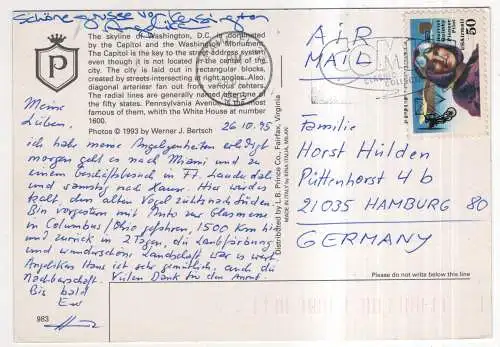 Schöne Grüsse
The skyline of Washington, D.C. is dominated
by the Capitol and the Washington Monument.
The Capitol is the key to the street address system
even though it is not located in the center of the
city. The city is laid out in rectangular blocks,
created by streets intersecting at right angles. Also,
diagonal arteries fan out from various centers.
The radial lines are generally named after one of
the fifty states. Pennsylvania Avenue is the most
famous of them, with the White House at number
1600.
Photos © 1993 by Werner J. Bertsch
P
Meine
Lieben,
26.10.95
ich habe meine Angelegenheiten erledigt
morgen geht es nach Miami und zu
einem Geschäftsbesuch in FT. Lauderdale
und samstag nach Hause. Hier wird es
kalt, den alten Vogel zieht's nach Süden.
Bin vorgestern mit Auto zur Glasmesse
in Columbus/Ohio gefahren, 1500 km hin
und zurück in 2 Tagen, die Laubfärbung
und wunderschöne Landschaft war es wert.
Angelikas Haus ist sehr gemütlich, auch die
Nachbarschaft. Vielen Dank für den Anruf.
Bis bald
Euer
983
Distributed by L.B. Prince Co., Fairfax, Virginia
MADE IN ITALY by KINA ITALIA, MILAN
AIR
MAIL
50
Harriet
Quimby
Pioneer
Pilot
Familie
Horst Hülden
Püttenhorst 4 b
21035 HAMBURG 80
GERMANY
Please do not write below this line